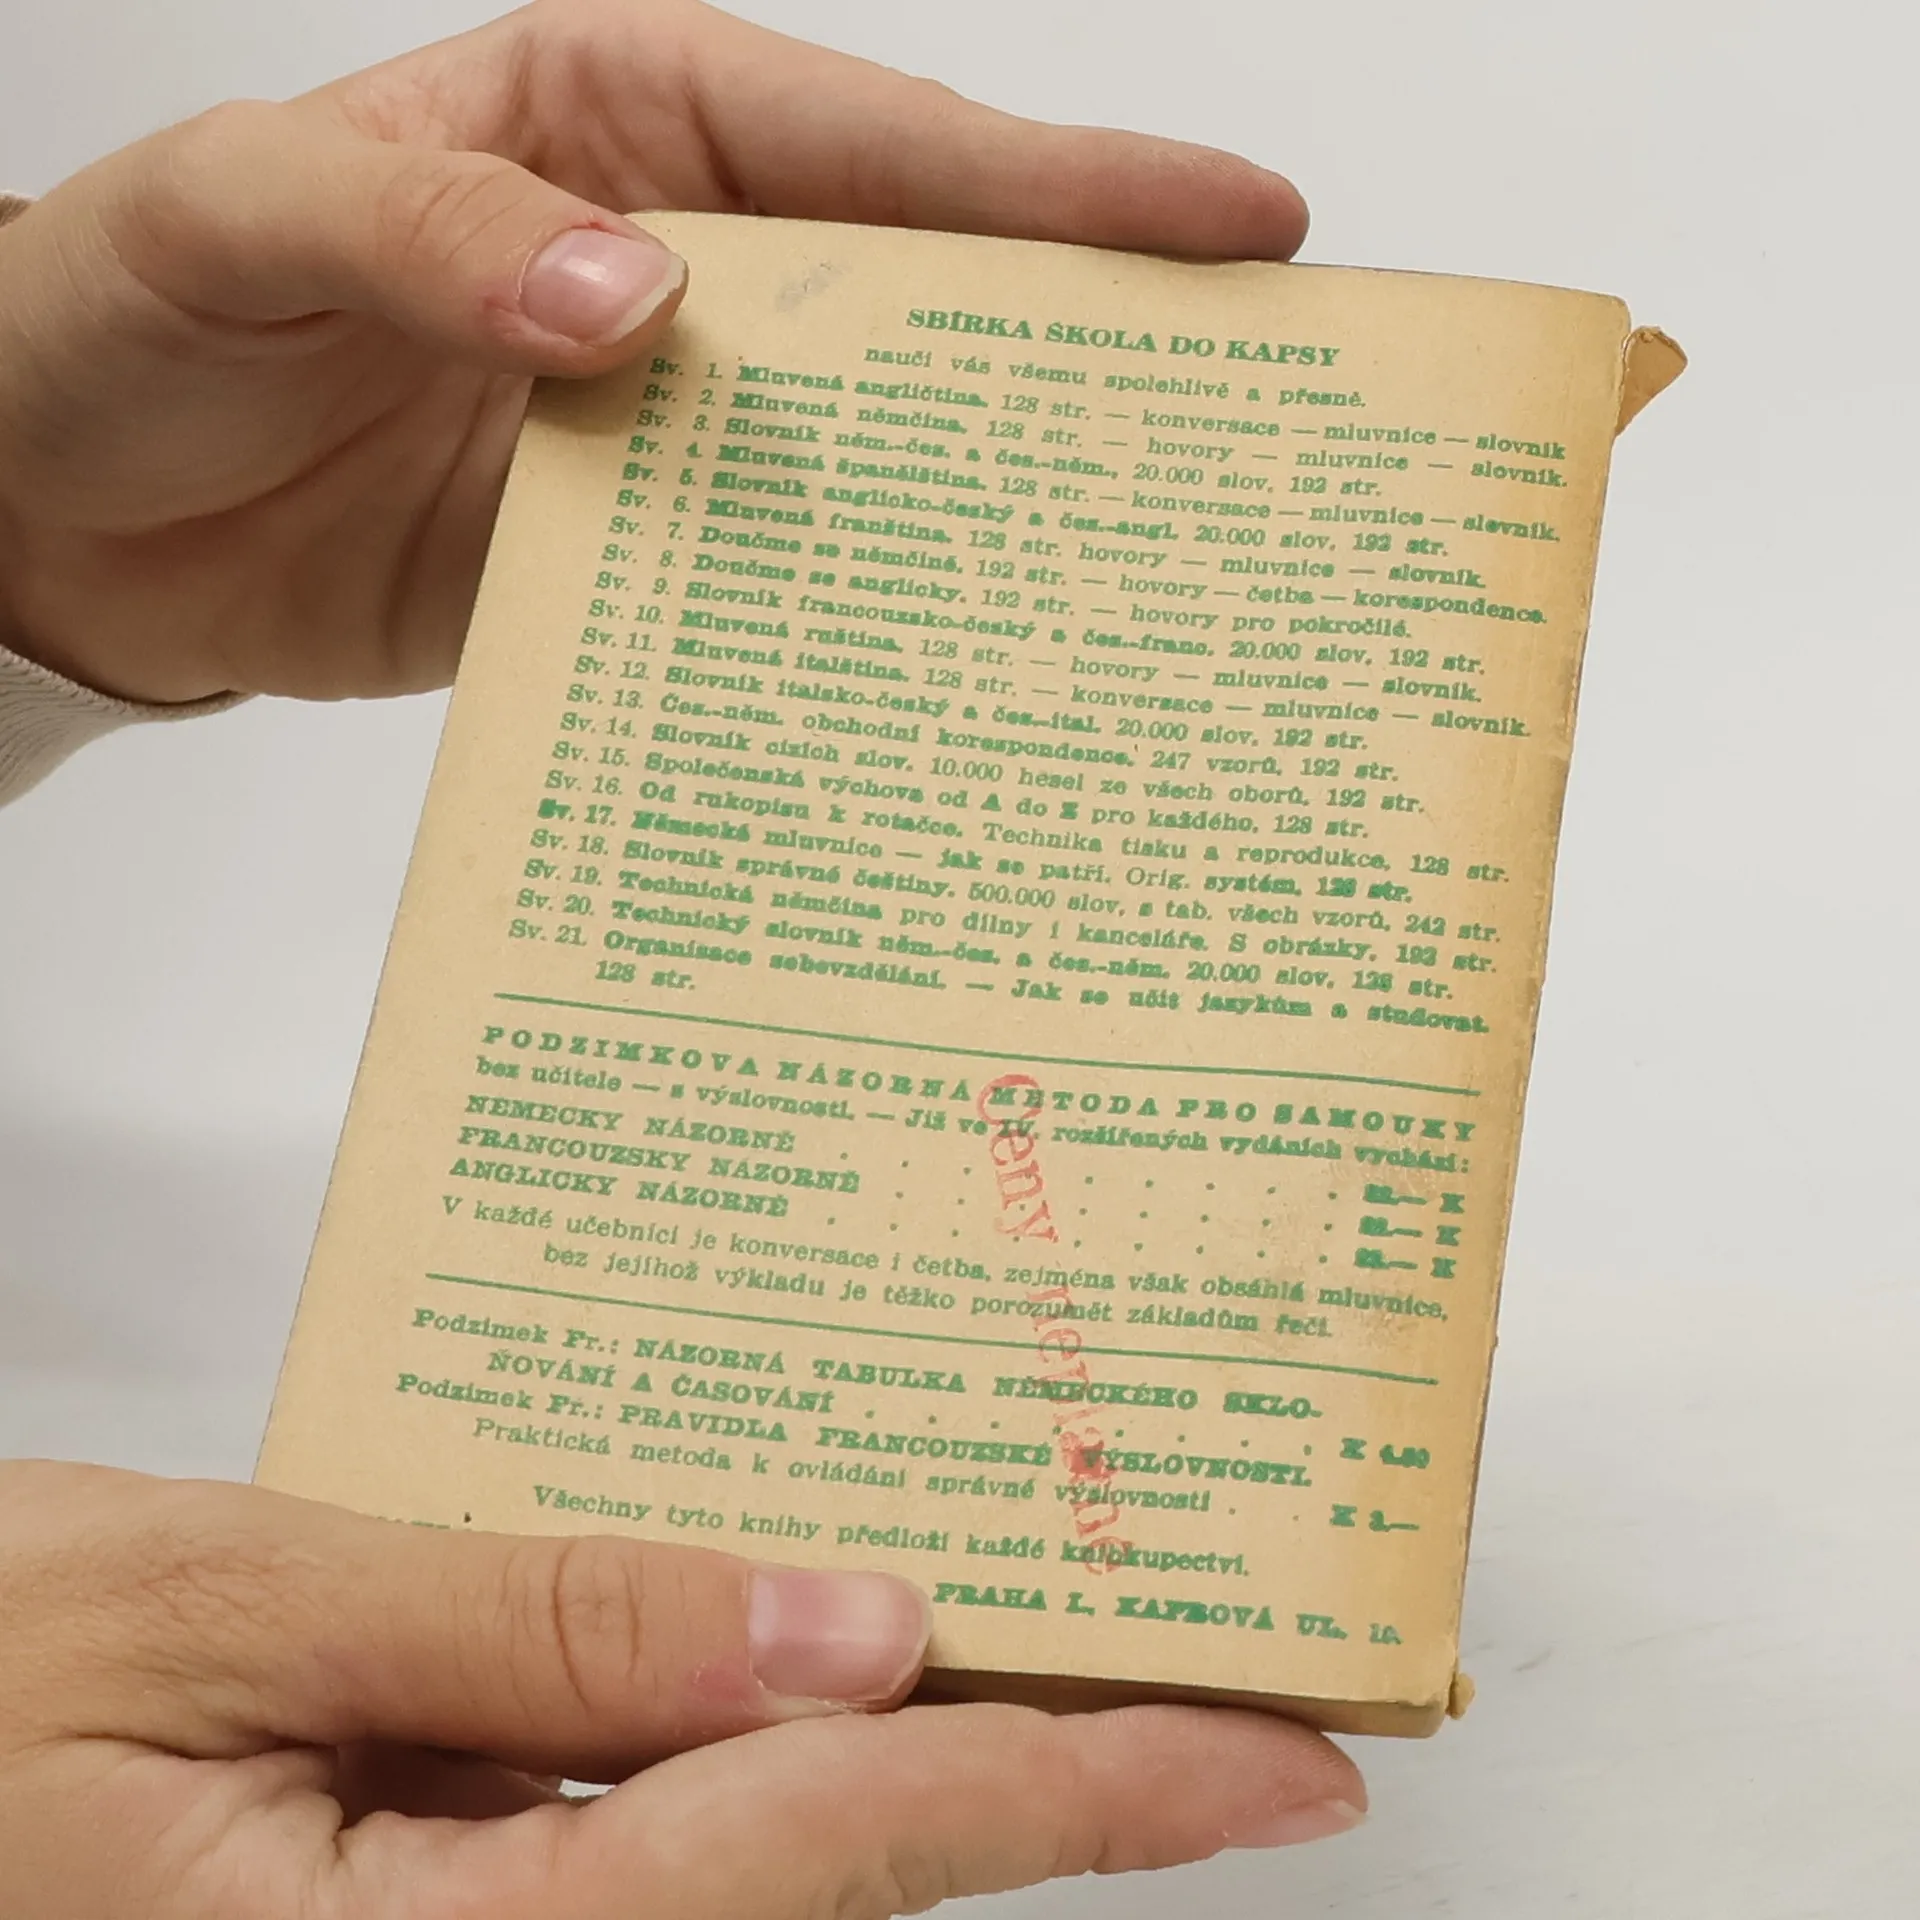 SBÍRKA ŠKOLA DO KAPSY
naučí vás všemu spolehlivě a přesně.
Sv. 1. Mluvená angličtina. 128 str. — konversace — mluvnice — slovník
Sv. 2. Mluvená němčina. 128 str. — hovory — mluvnice — slovník.
Sv. 3. Slovník něm.-čes. a čes.-něm., 20.000 slov. 192 str.
Sv. 4. Mluvená španělština. 128 str. — konversace — mluvnice — slovník.
Sv. 5. Slovník anglicko-český a čes.-angl. 20.000 slov. 192 str.
Sv. 6. Mluvená franština. 128 str. hovory — mluvnice — slovník.
Sv. 7. Doučme se němčině. 192 str. — hovory — četba — korespondence.
Sv. 8. Doučme se anglicky. 192 str. — hovory pro pokročilé.
Sv. 9. Slovník francouzsko-český a čes.-franc. 20.000 slov. 192 str.
Sv. 10. Mluvená ruština. 128 str. — hovory — mluvnice — slovník.
Sv. 11. Mluvená italština. 128 str. — konversace — mluvnice — slovník.
Sv. 12. Slovník italsko-český a čes.-ital. 20.000 slov. 192 str.
Sv. 13. Čes.-něm. obchodní korespondence. 247 vzorů. 192 str.
Sv. 14. Slovník cizích slov. 10.000 hesel ze všech oborů. 192 str.
Sv. 15. Společenská výchova od A do Z pro každého. 128 str.
Sv. 16. Od rukopisu k rotačce. Technika tisku a reprodukce. 128 str.
Sv. 17. Německá mluvnice — jak se patří. Orig. systém. 128 str.
Sv. 18. Slovník správné češtiny. 500.000 slov, s tab. všech vzorů. 242 str.
Sv. 19. Technická němčina pro dílny i kanceláře. S obrázky. 192 str.
Sv. 20. Technický slovník něm.-čes. a čes.-něm. 20.000 slov. 128 str.
Sv. 21. Organisace sebevzdělání. — Jak se učit jazykům a studovat.
128 str.
PODZIMKOVA NÁZORNÁ METODA PRO SAMOUKY
bez učitele — s výslovností. — Již ve IV. rozšířených vydáních vychází:
NĚMECKY NÁZORNĚ . . . . . . . . K
FRANCOUZSKY NÁZORNĚ . . . . . . . K
ANGLICKY NÁZORNĚ . . . . . . . . K
V každé učebnici je konversace i četba, zejména však obsáhlá mluvnice,
bez jejíhož výkladu je těžko porozumět základům řeči.
Podzimek Fr.: NÁZORNÁ TABULKA NĚMECKÉHO SKLO-
ŇOVÁNÍ A ČASOVÁNÍ . . . . . . . . K 4.80
Podzimek Fr.: PRAVIDLA FRANCOUZSKÉ VÝSLOVNOSTI.
Praktická metoda k ovládání správné výslovnosti . . K 3.—
Všechny tyto knihy předloží každé knihkupectví.
PRAHA I., KAPROVÁ UL. 10.
Ceny neplatné